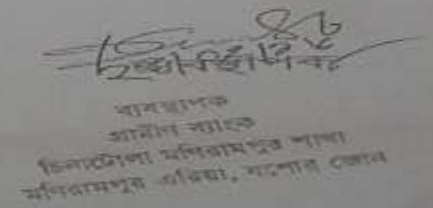 ব্যবস্থাপক
গ্রামীণ ব্যাংক
চিনাটোলা মনিরামপুর শাখা
মনিরামপুর এরিয়া, যশোর জোন